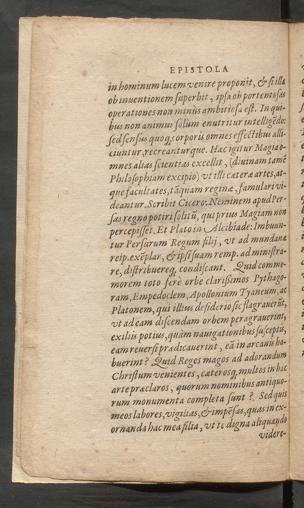 EPISTOLA
in hominum lucem venire proponit, & si illa
ob inuentionem superbit, ipsa ob portentosas
operationes non minùs ambitiosa est. In qui-
bus non animus solùm enutritur intelligēdo:
sed sensus quoq; corporis omnes effectibus alli-
ciuntur, recreanturque. Hac igitur Magia o-
mnes alias scientias excellit, (diuinam tamē
Philosophiam excipio) vt illi cæteræ artes, at-
que facultates, tāquam reginæ, famulari vi-
deantur. Scribit Cicero: Neminem apud Per-
sas regno potiri solitū, qui prius Magiam non
percepisset. Et Plato in Alcibiade: Imbuun-
tur Persarum Regum filij, vt ad mundanæ
reip. exēplar, & ipsi suam remp. administra-
re, distribuereq; condiscant. Quid comme-
morem toto ferè orbe clarissimos Pythago-
ram, Empedoclem, Apollonium Tyaneum, ac
Platonem, qui illius desiderio sic flagrauerūt,
vt ad eam discendam orbem peragrauerint,
exilijs potiùs, quàm nauigationibus susceptis,
eam reuersi prædicauerint, eā in arcanis ha-
buerint? Quid Reges magos ad adorandum
Christum venientes, cæterosq; multos in hac
arte præclaros, quorum nominibus antiquo-
rum monumenta completa sunt? Sed quis
meos labores, vigilias, & impēsas, quas in ex-
ornanda hac mea filia, vt te digna aliquando
videre-